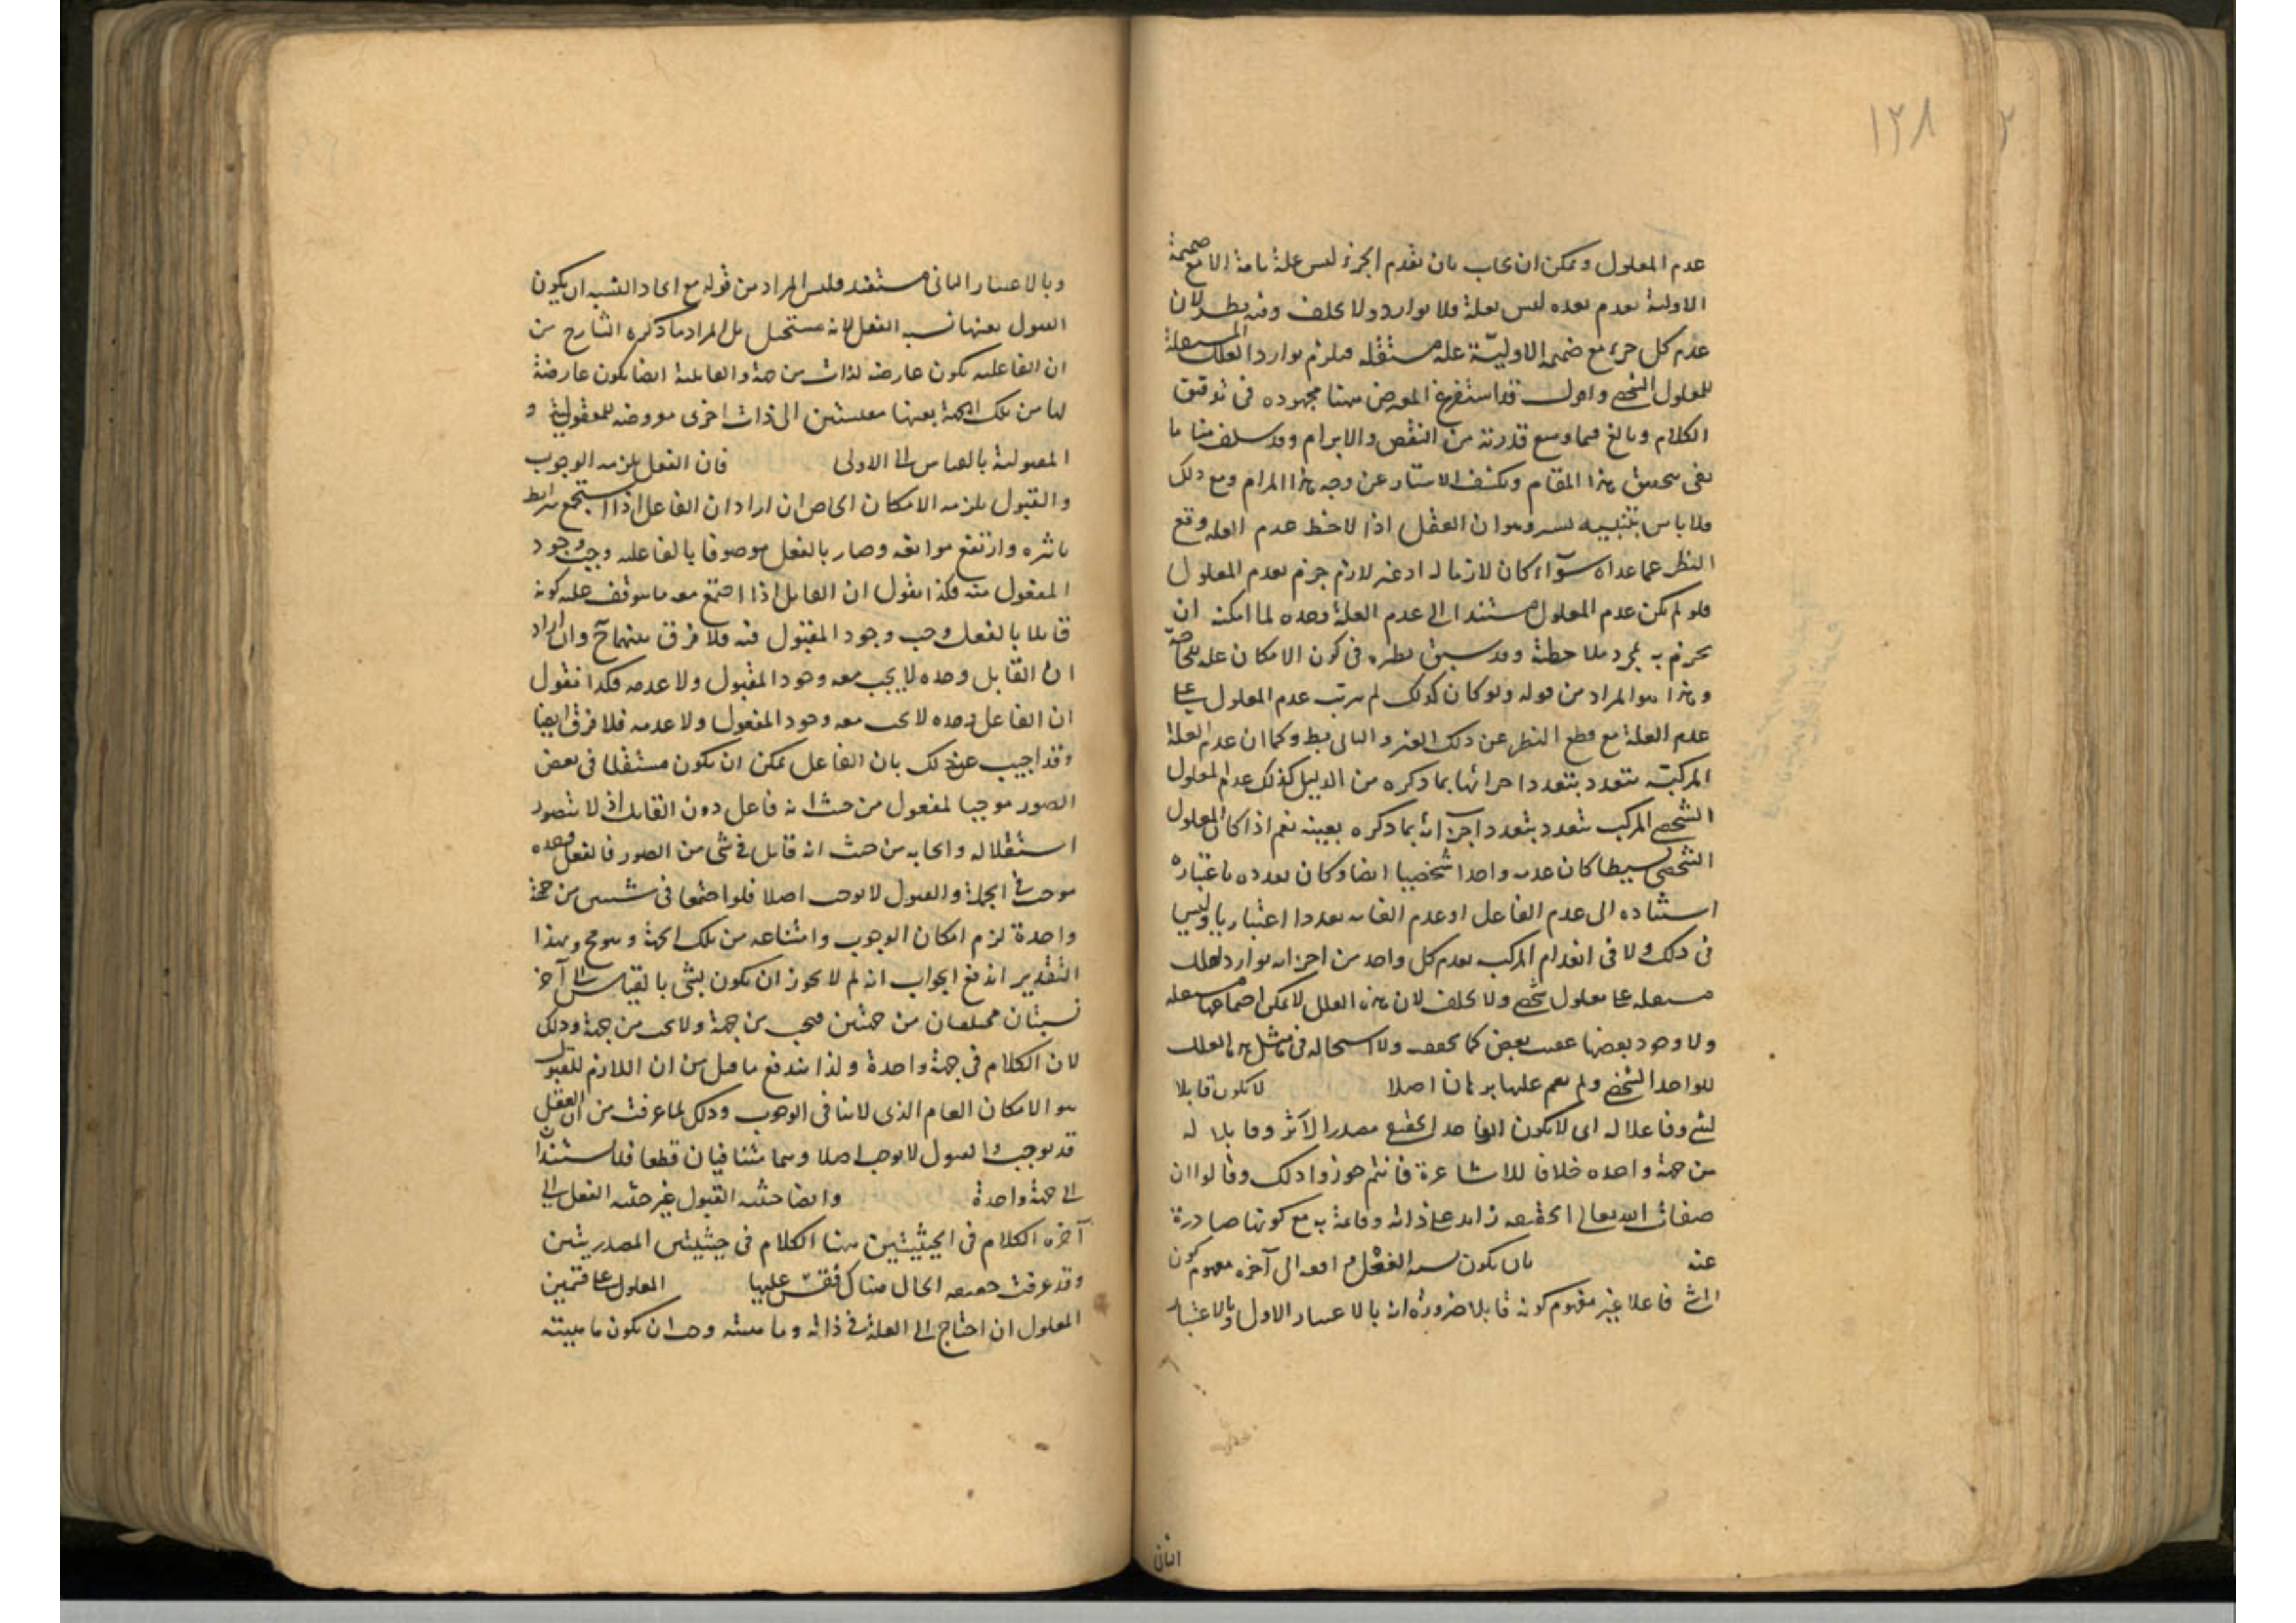 ١٣٨
عدم المعلول ويمكن ان يجاب بان تقدم الجزء ليس علة تامة الا مع ضميمة
الاولية فعدم بعده ليس بعلة فلا توارد ولا تخلف وفيه نظر لان
عدم كل جزء مع ضميمة الاوليّة علة مستقلة فيلزم توارد العلل المستقلة
للمعلول الشخصي واقول قد استفرغ المعرض ههنا مجهوده في توفيق
الكلام وبالغ فيما وسع قدرته من النقض والابرام وقد سلف منا ما
يفى بتحقيق هذا المقام ويكشف الاستار عن وجه هذا المرام ومع ذلك
فلا باس بتنبيه يسير وهو ان العقل اذا لاحظ عدم العلة وقطع
النظر عما عداه سوآء كان لازما له او غير لازم جزم بعدم المعلول
فلو لم يكن عدم المعلول مستندا الى عدم العلة وحده لما امكنه ان
يجزم به بمجرد ملاحظته وقد سبق نظيره في كون الامكان علة للحاجة
وهذا هو المراد من قوله ولو كان كذلك لم يترتب عدم المعلول على
عدم العلة مع قطع النظر عن ذلك الغير والتالى بط وكما ان عدم العلة
المركبة يتعدد بتعدد اجزائها بما ذكره من الدليل كذلك عدم المعلول
الشخصي المركب يتعدد بتعدد اجزائه بما ذكره بعينه نعم اذا كان المعلول
الشخصي بسيطا كان عدمه واحدا شخصيا ايضا وكان تعدده باعتباره
استناده الى عدم الفاعل او عدم الغاية تعددا اعتباريا وليس
في ذلك ولا في انعدام المركب بعدم كل واحد من اجزائه توارد لعلل
مستقلة على معلول شخصي ولا تخلف لان هذه العلل لا يمكن اجتماعها مستقلة
ولا وجود بعضها عقيب بعض كما تحقق ولا استحالة في مثل هذا العلل
للواحد الشخصي ولم يقم عليها برهان اصلا لا يكون قابلا
لشئ وفاعلا له اى لا يكون الواحد الحقيقى مصدرا لاثر وقابلا له
من جهة واحده خلافا للاشاعرة فانهم جوزوا ذلك وقالوا ان
صفات الله تعالى الحقيقية زايدة على ذاته وقائمة به مع كونها صادرة
عنه بان يكون نسبة الفعل اقعه الى آخره مفهوم كون
الشئ فاعلا غير مفهوم كونه قابلا ضرورة انه بالاعتبار الاول وبالاعتبار
الثانى
وبالاعتبار الثانى مستفيد فليس المراد من قوله مع اتحاد النسبة ان يكون
القبول بعينها نسبة الفعل لانه مستحيل بل المراد ما ذكره الشارح من
ان الفاعلية يكون عارضة لذات من جهة والقابلية ايضا يكون عارضة
لها من تلك الجهة بعينها مقيستين الى ذات اخرى معروضة للمفعولية و
المقبولية بالقياس الى الاولى فان الفعل يلزمه الوجوب
والقبول يلزمه الامكان الخاص ان اراد ان الفاعل اذا استجمع شرايط
تاثيره وارتفع موانعه وصار بالفعل موصوفا بالفاعلية وجب وجود
المفعول منه فكذا نقول ان القابل اذا اجتمع معه ما يتوقف عليه كونه
قابلا بالفعل وجب وجود المقبول فيه فلا فرق بينهما ح وان اراد
ان القابل وحده لا يجب معه وجود المقبول ولا عدمه فكذا نقول
ان الفاعل وحده لا يجب معه وجود المفعول ولا عدمه فلا فرق ايضا
وقد اجيب عن ذلك بان الفاعل يمكن ان يكون مستقلا في بعض
الصور موجبا لمفعول من حيث انه فاعل دون القابل اذ لا يتصور
استقلاله وايجابه من حيث انه قابل في شئ من الصور فالفعل وحده
موجب في الجملة والقبول لا يوجب اصلا فلو اجتمعا في شئ من جهة
واحدة لزم امكان الوجوب وامتناعه من تلك الحيثية وهو مح وبهذا
التقدير اندفع الجواب انه لم لا يجوز ان يكون لشئ بالقياس الى آخر
نسبتان مختلفتان من جهتين فيجب من جهة ولا يجب من جهة وذلك
لان الكلام في جهة واحدة ولذا يندفع ما قيل من ان اللازم للقبول
هو الامكان العام الذى لا ينافى الوجوب وذلك لما عرفت من ان الفعل
قد يوجب والقبول لا يوجب اصلا وهما متنافيان قطعا فلا يستندان
الى جهة واحدة وايضا حيثية القبول غير حيثية الفعل الى
آخره الكلام في الحيثيتين ههنا الكلام في حيثيتى المصدريتين
وقد عرفت حقيقة الحال هناك فقس عليها المعلول على قسمين
المعلول ان احتاج الى العلة في ذاته وماهيته وجب ان يكون ماهيته